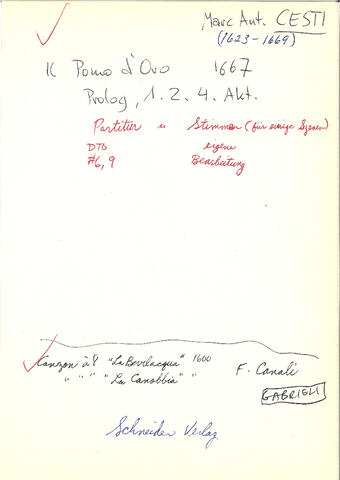 Marc Ant. CESTI
(1623-1669)
Il Pomo d'Oro 1667
Prolog, 1. 2. 4. Akt.
Partitur u Stimmen (für einige Szenen)
DTÖ eigene
#6, 9 Bearbeitung
Canzon à 8 "La Bevilacqua" 1600
" " " "La Canobbia" " F. Canali
GABRIELI
Schneider Verlag